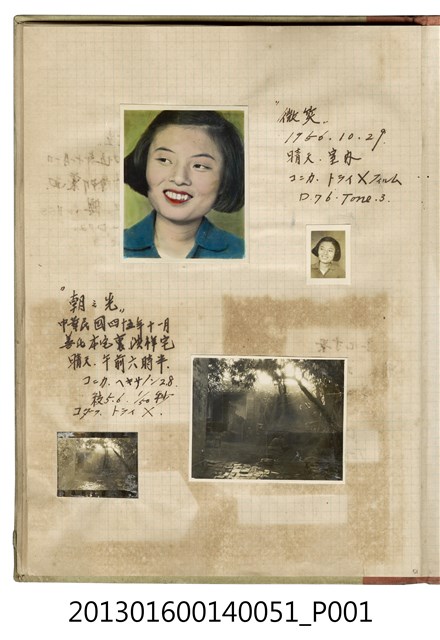 "微笑"
1956.10.29.
晴天.室内
コニカ.トライXフィルム
D.76.Tone.3.
"朝之光"
中華民國四十五年十一月
晴天.午前六時半.
コニカ.ヘキサノン28.
絞5.6. 1/50秒
コダック.トライX.
201301600140051_P001